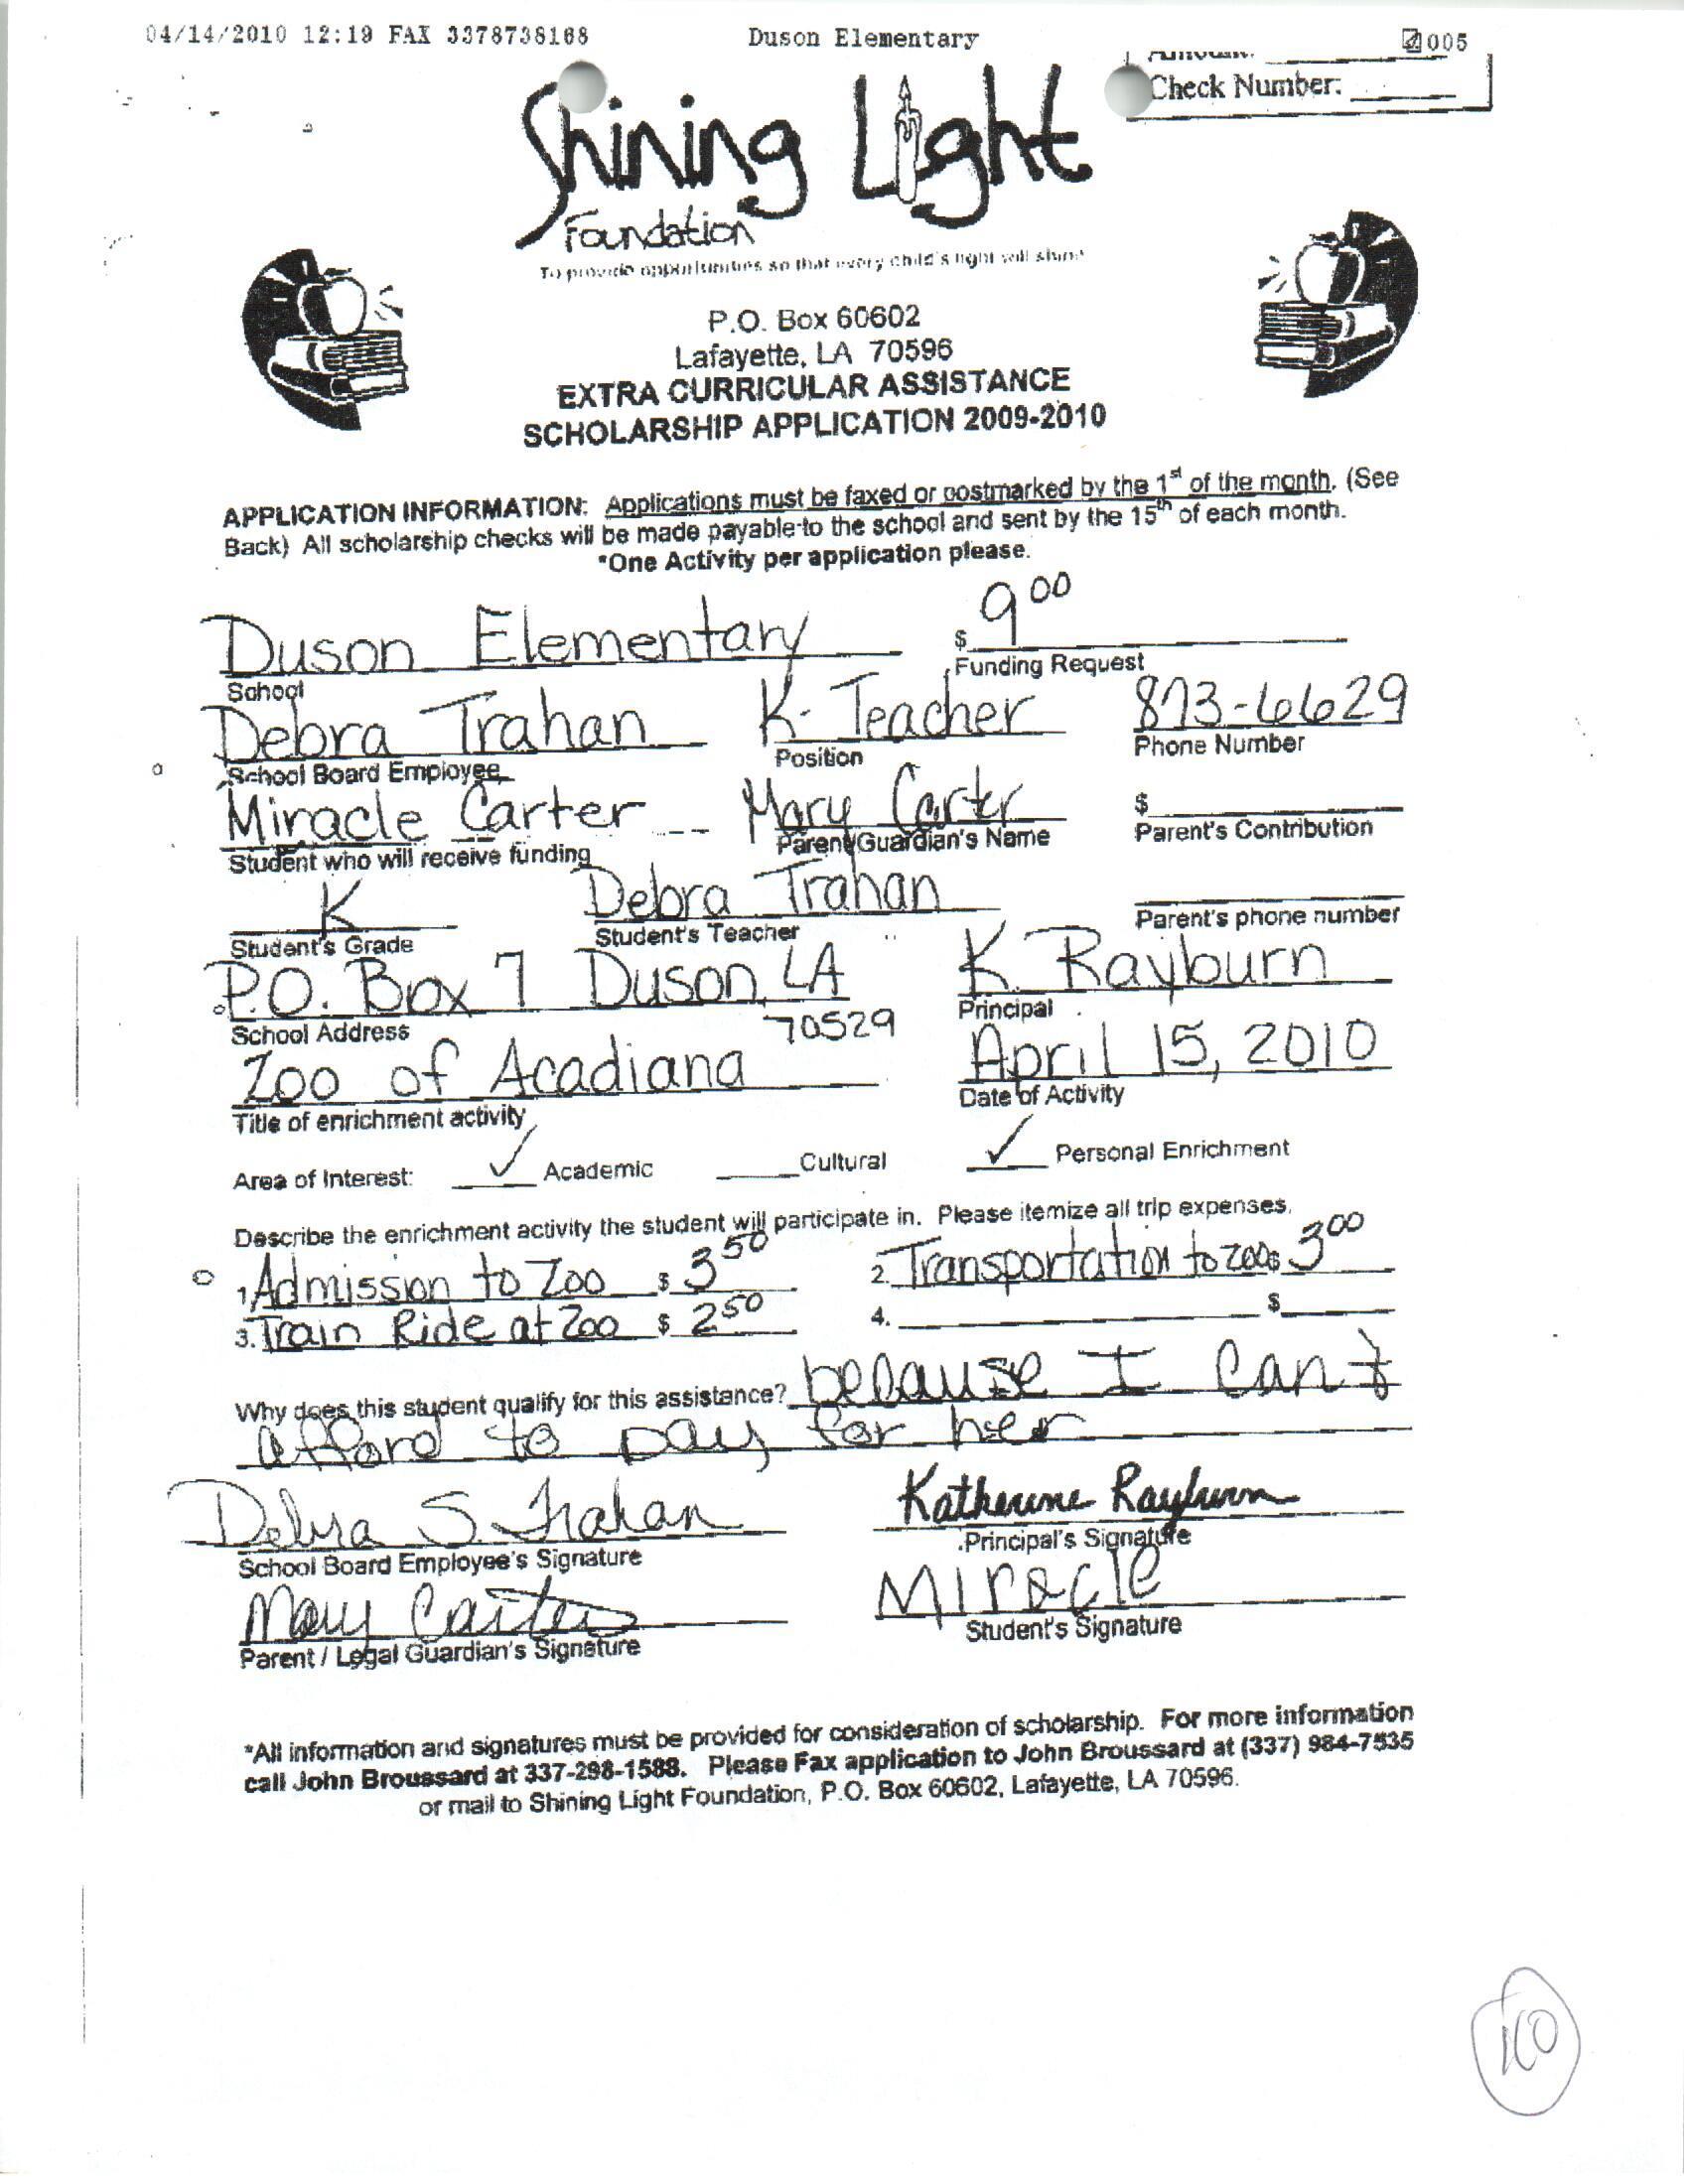 04/14/2010 12:19 FAX 3378738168 Duson Elementary 005
Amount:
Check Number:
Shining Light
Foundation
To provide opportunities so that every child's light will shine
P.O. Box 60602
Lafayette, LA 70596
EXTRA CURRICULAR ASSISTANCE
SCHOLARSHIP APPLICATION 2009-2010
APPLICATION INFORMATION: Applications must be faxed or postmarked by the 1st of the month. (See
Back) All scholarship checks will be made payable to the school and sent by the 15th of each month.
*One Activity per application please.
Duson Elementary $ 9 00
School Funding Request
Debra Trahan K-Teacher 873-6629
School Board Employee Position Phone Number
Miracle Carter Mary Carter $
Student who will receive funding Parent/Guardian's Name Parent's Contribution
K Debra Trahan
Student's Grade Student's Teacher Parent's phone number
P.O. Box 7 Duson, LA K. Rayburn
School Address 70529 Principal
Zoo of Acadiana April 15, 2010
Title of enrichment activity Date of Activity
Area of Interest: ✓ Academic Cultural ✓ Personal Enrichment
Describe the enrichment activity the student will participate in. Please itemize all trip expenses.
1. Admission to Zoo $ 3 50 2. Transportation to zoo $ 3 00
3. Train Ride at Zoo $ 2 50 4. $
Why does this student qualify for this assistance? because I can't
afford to pay for her
Debra S. Trahan Katherine Rayburn
School Board Employee's Signature Principal's Signature
Mary Carter Miracle
Parent / Legal Guardian's Signature Student's Signature
*All information and signatures must be provided for consideration of scholarship. For more information
call John Broussard at 337-298-1588. Please Fax application to John Broussard at (337) 984-7535
or mail to Shining Light Foundation, P.O. Box 60602, Lafayette, LA 70596.